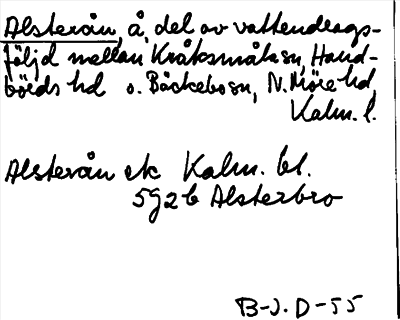 Alsterån, å, del av vattendrags-
följd mellan Kråksmåla sn, Hand-
börds hd o. Bäckebo sn, N. Möre hd,
Kalm. l.
Alsterån ek Kalm. bl.
592b Alsterbro
B-J. D-55